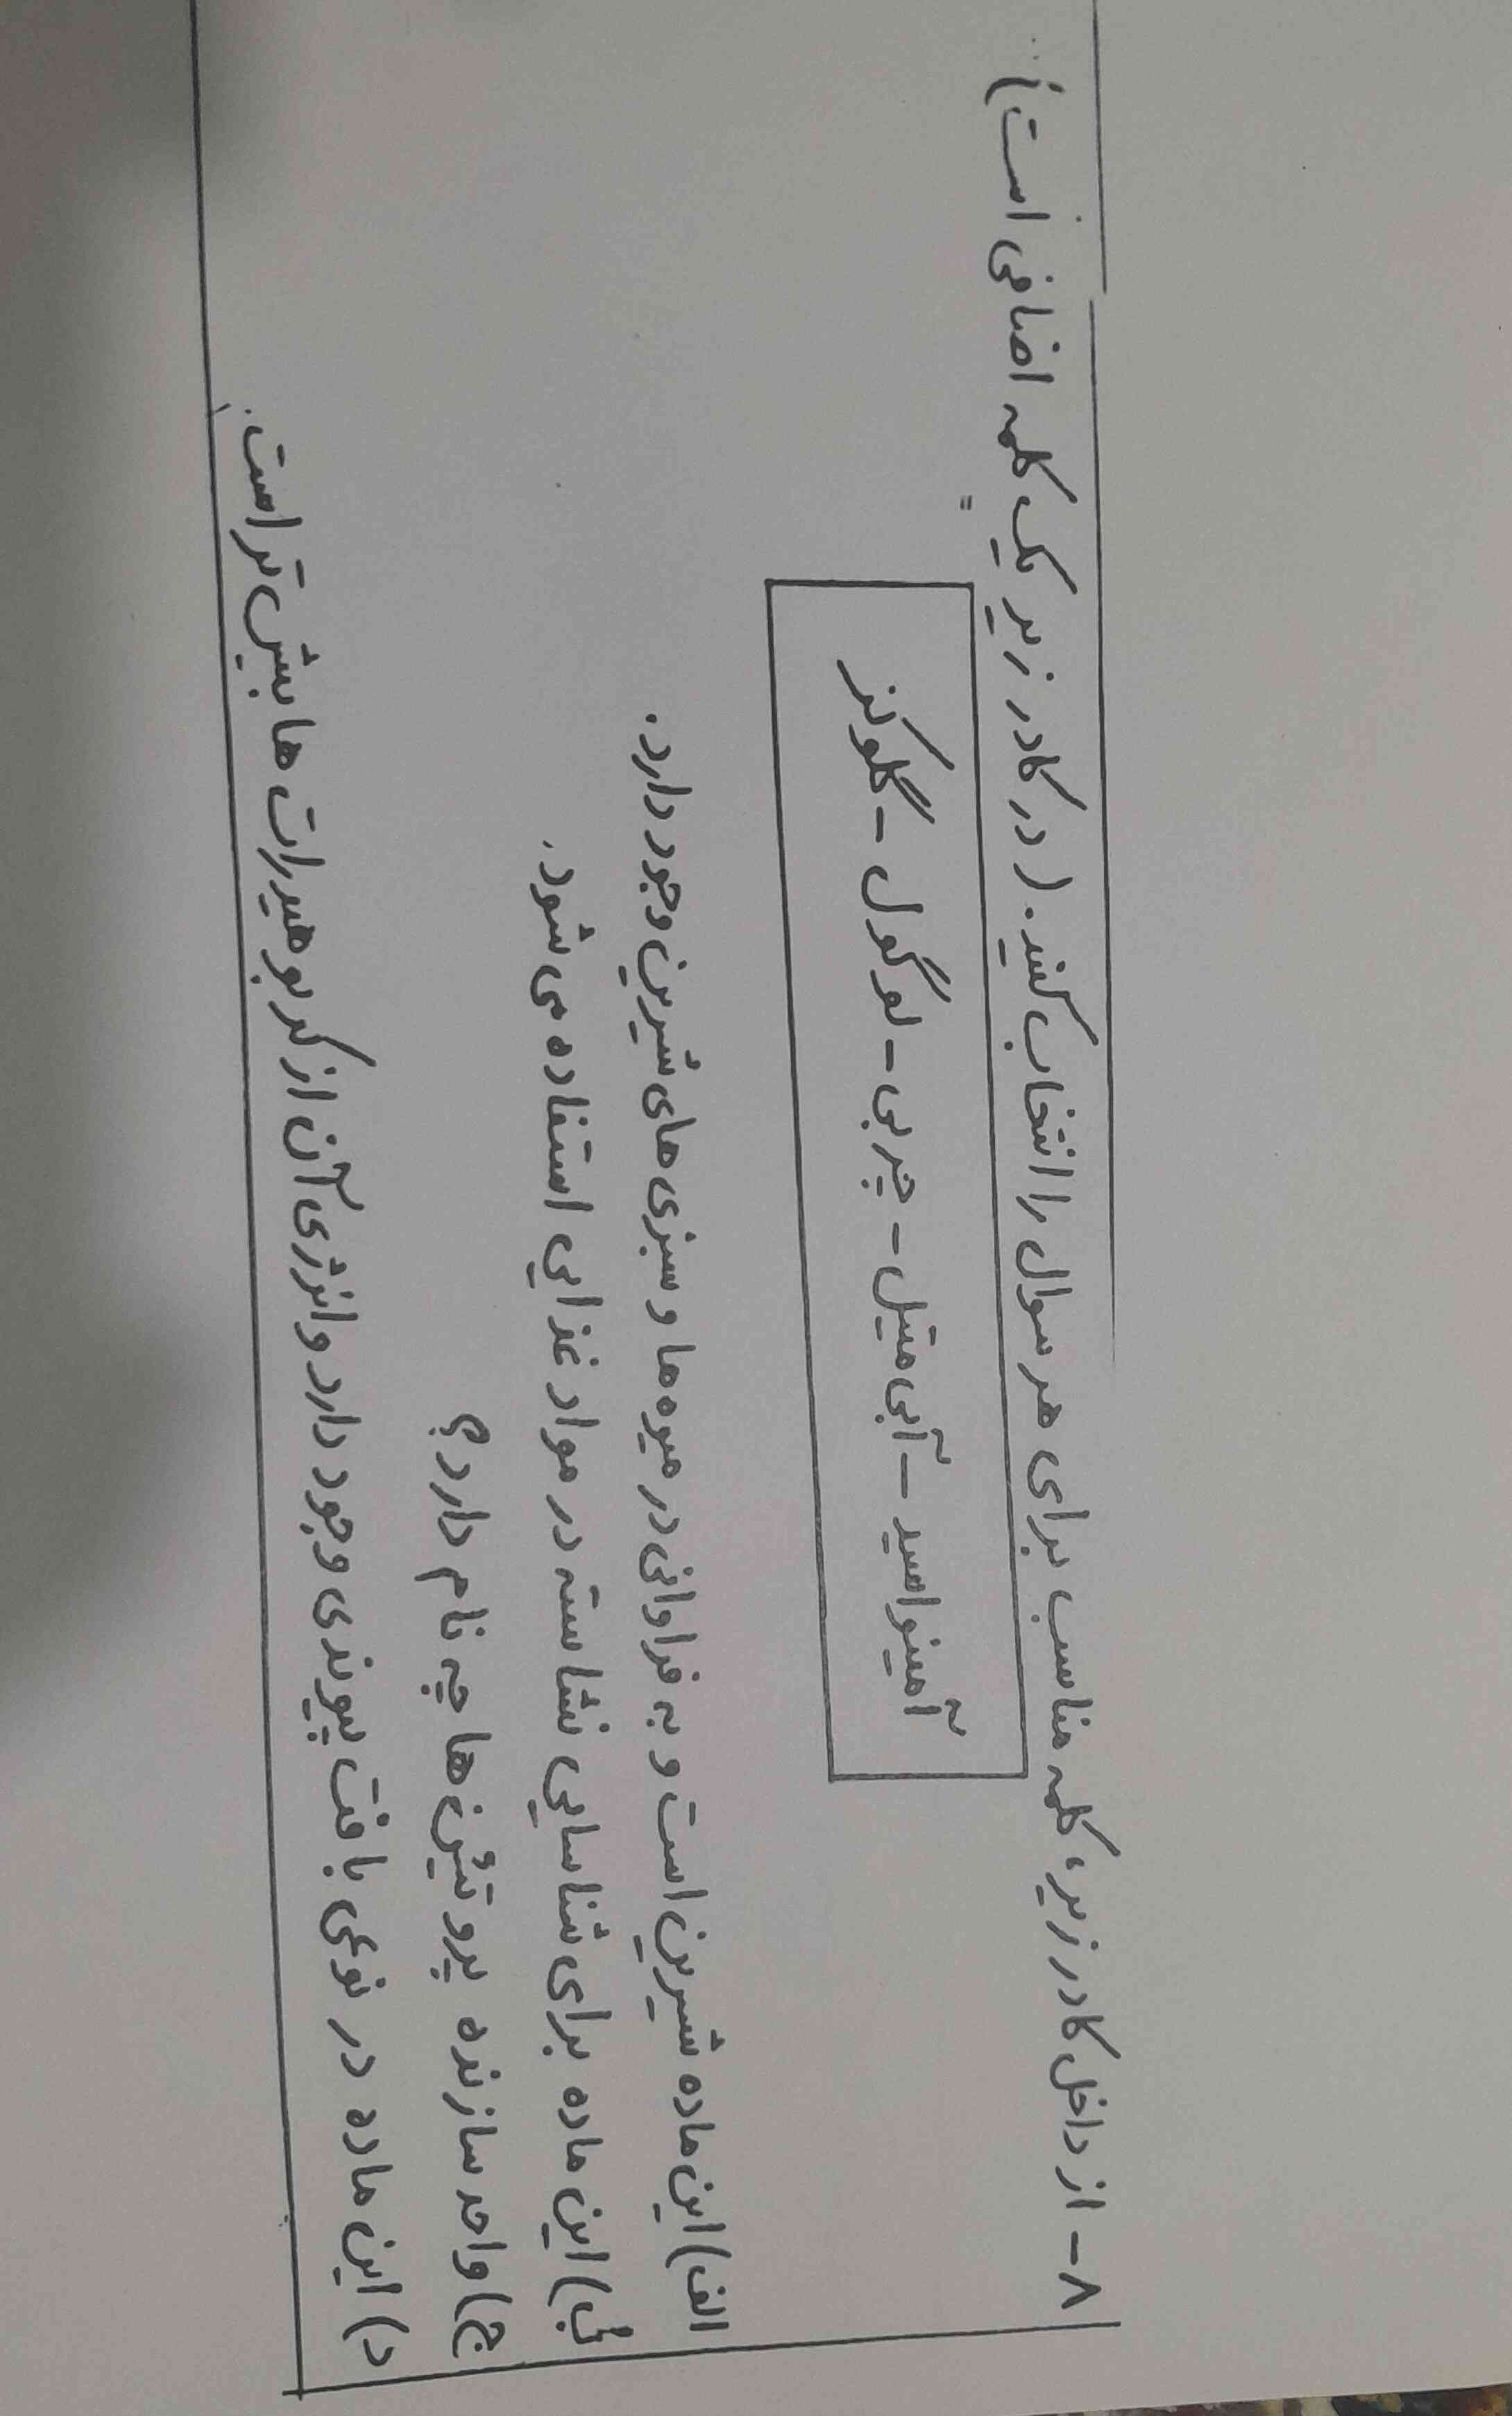 ۸- از داخل کادر زیر، کلمه مناسب برای هر سوال را انتخاب کنید. (در کادر زیر یک کلمه اضافی است)
آمینواسید - آبی متیل - چربی - لوگول - گلوکز
الف) این ماده شیرین است و به فراوانی در میوه ها و سبزی های شیرین وجود دارد.
ب) این ماده برای شناسایی نشاسته در مواد غذایی استفاده می شود.
ج) واحد سازنده پروتئین ها چه نام دارد؟
د) این ماده در نوعی بافت پیوندی وجود دارد و انرژی آن از کربوهیدرات ها بیش تر است.